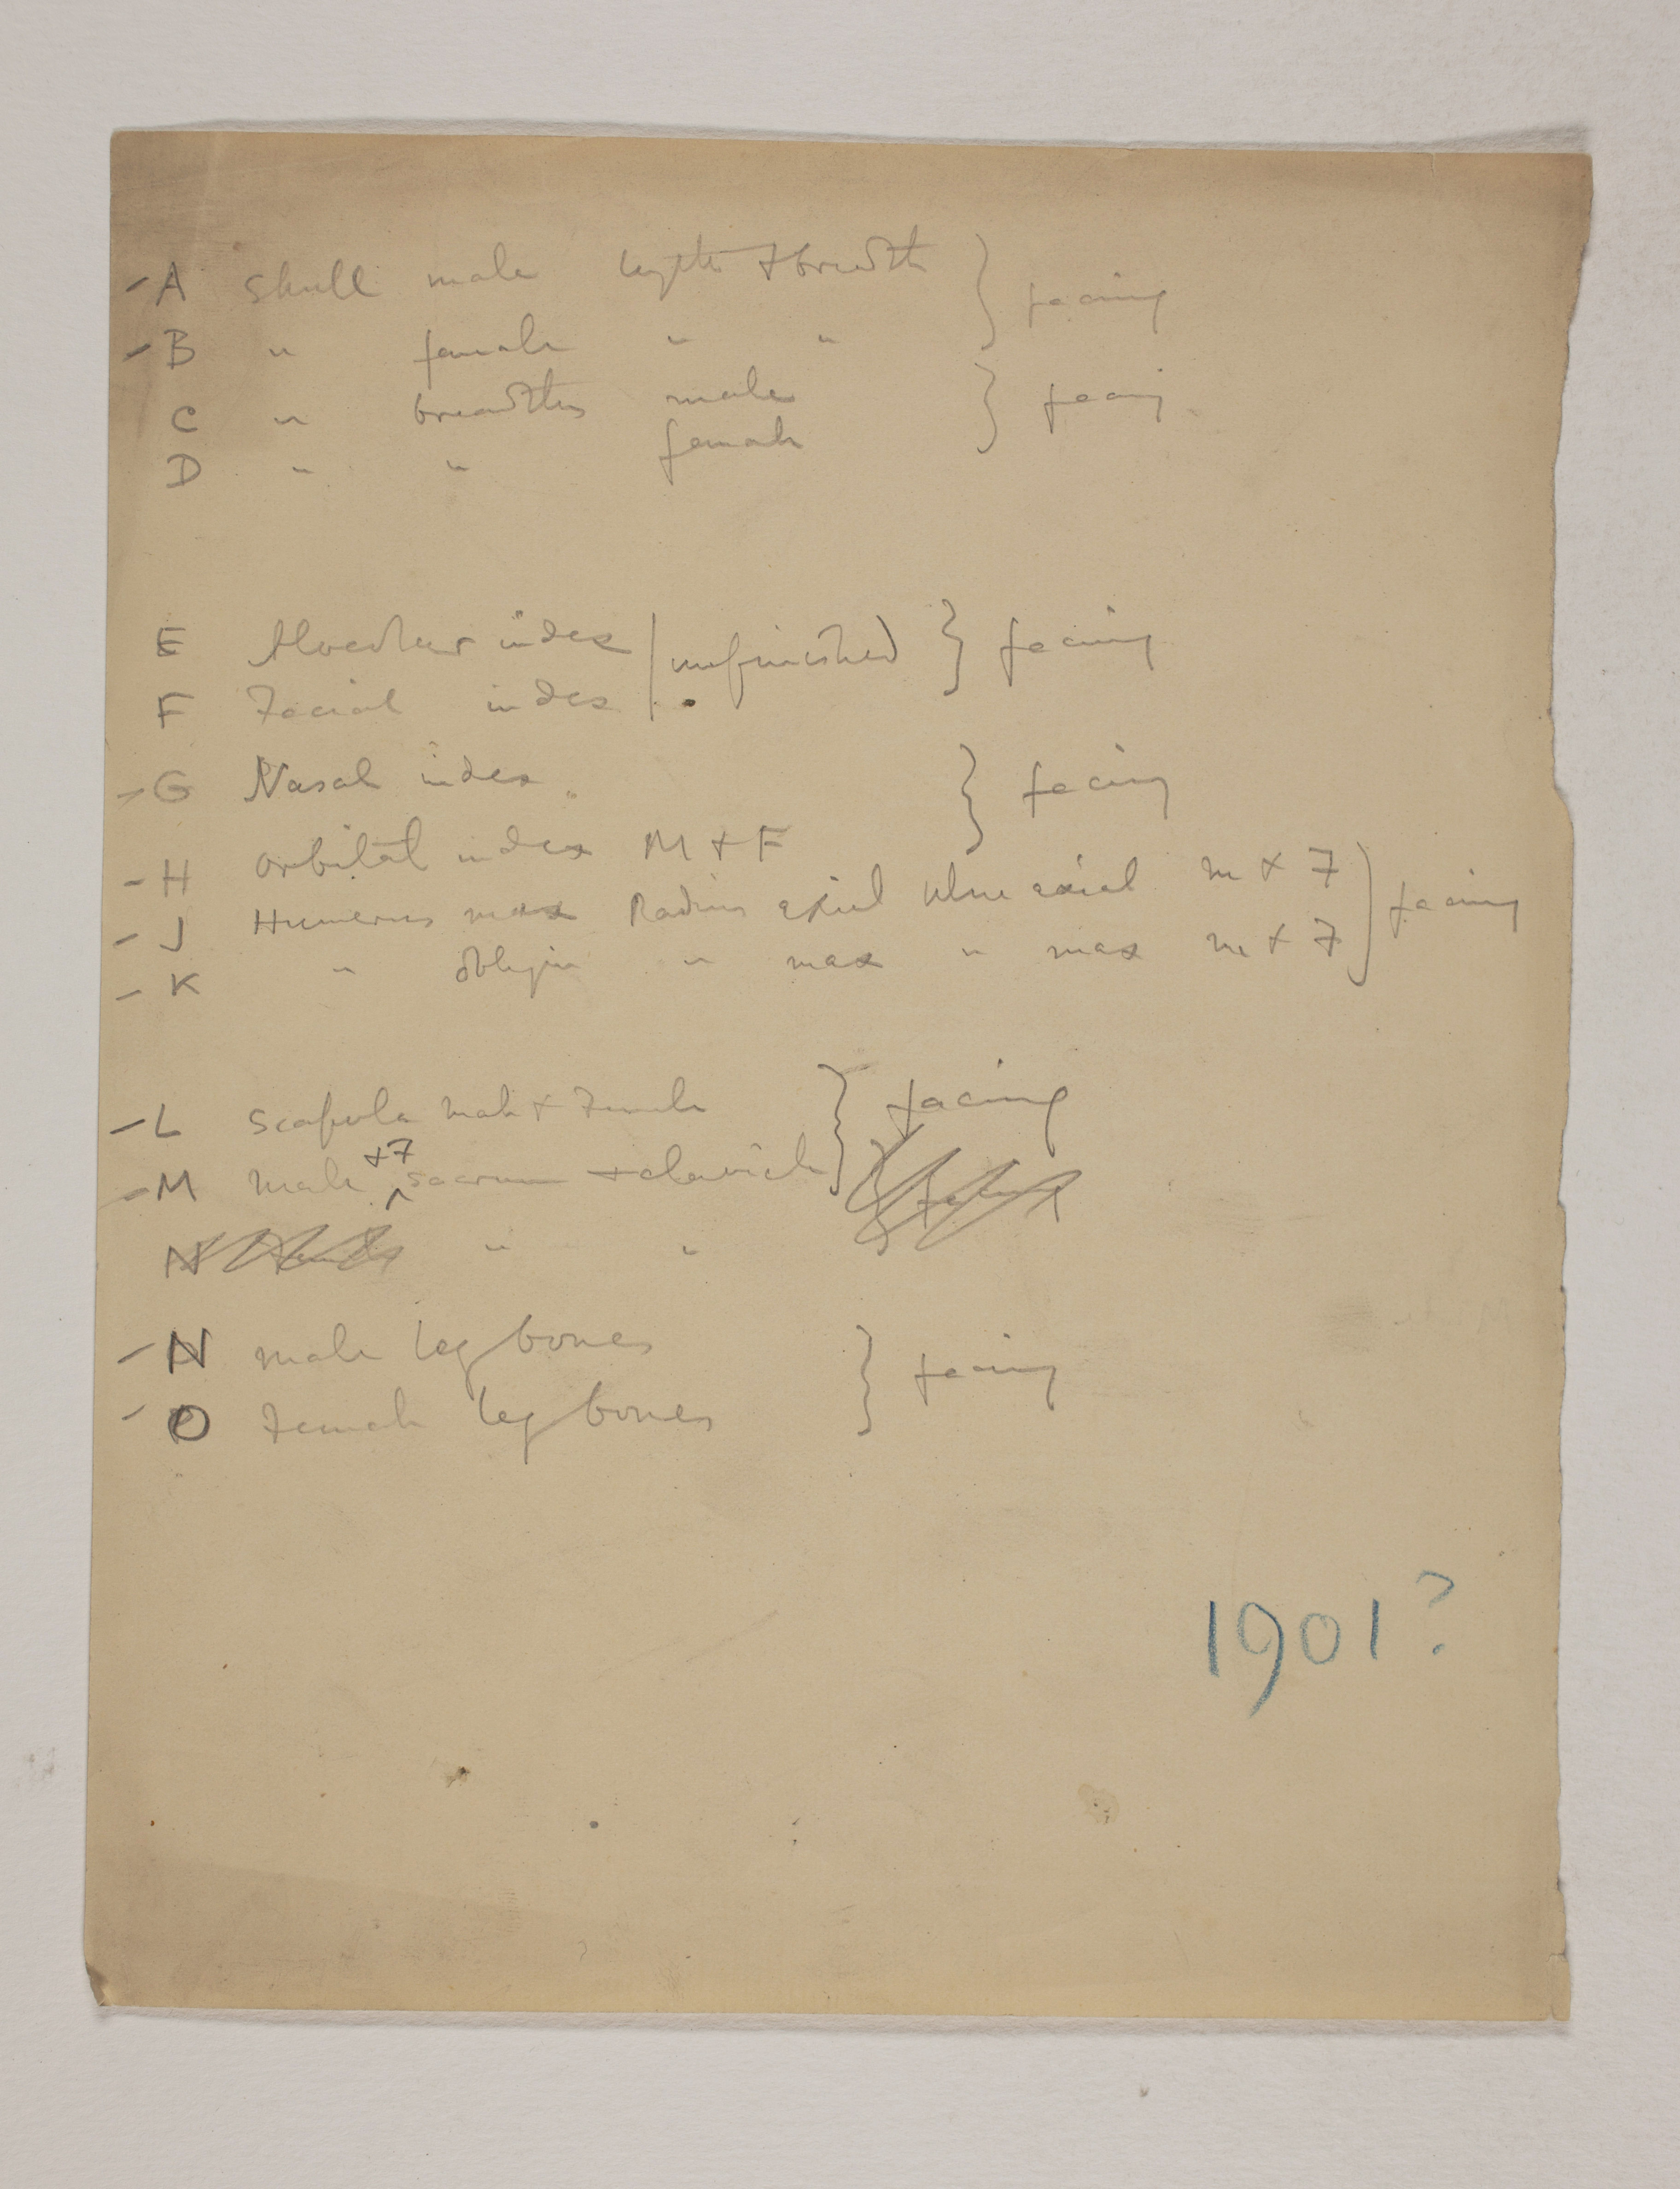 - A Skull male length + breadth } facing
- B " female " " 
C " breadths male } facing
D " " female
E Alveolar index | unfinished } facing
F Facial index
- G Nasal index. } facing
- H Orbital index M + F
- J Humerus max Radius axial Ulna axial M + F } facing
- K " oblique " max " max M + F
- L Scapula male + Female } facing
- M male + F sacrum + clavicle
N Female " "
- N male leg bones } facing
- O Female leg bones
1901?